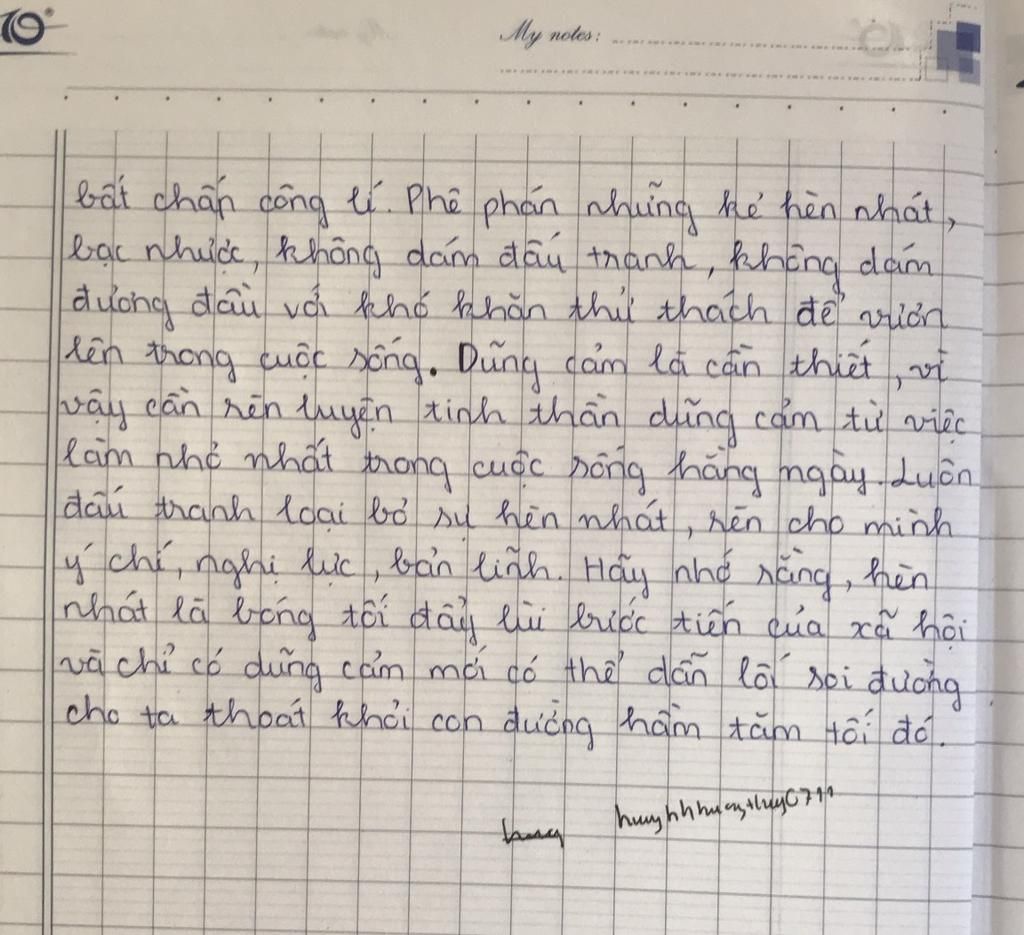 10°
My notes:
bất chấp công lí. Phê phán những kẻ hèn nhát,
bạc nhược, không dám đấu tranh, không dám
đương đầu với khó khăn thử thách để vươn
lên trong cuộc sống. Dũng cảm là cần thiết, vì
vậy cần rèn luyện tinh thần dũng cảm từ việc
làm nhỏ nhất trong cuộc sống hằng ngày. Luôn
đấu tranh loại bỏ sự hèn nhát, rèn cho mình
ý chí, nghị lực, bản lĩnh. Hãy nhớ rằng, hèn
nhát là bóng tối đẩy lùi bước tiến của xã hội
và chỉ có dũng cảm mới có thể dẫn lối soi đường
cho ta thoát khỏi con đường hầm tăm tối đó.